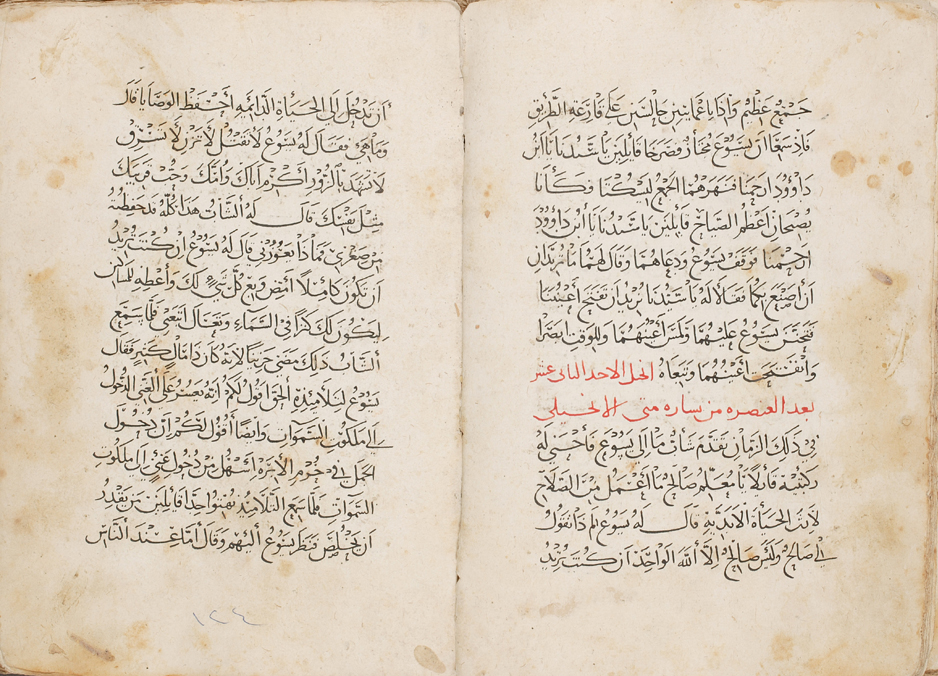 جمع عظيم واذا باعماتين جالسين علي قارعة الطريق
فاذ سمعا ان يسوع مجتاز فصرخا قايلين يا سيدنا يا ابن
داوود ارحمنا فنهرهما الجمع ليسكتا فكانا
يصيحان اعظم الصياح قايلين يا سيدنا يا ابن داوود
ارحمنا فوقف يسوع ودعاهما وقال لهما ما تريدان
ان اصنع بكما فقالا له يا سيدنا نريد ان تفتح اعيننا
فتحنن يسوع عليهما ولمس اعينهما وللوقت بصرا
وانفتحت اعينهما وتبعاه انجيل الاحد الثاني عشر
بعد العنصره من بشاره متي الانجيلي
في ذلك الزمان تقدم شاب ما الي يسوع فاحني له
ركبتيه قايلا يا معلم صالح ما اعمل من الصلاح
لارث الحياة الابدية قال له يسوع لم ذا تقول
لي صالح وليس صالح الا الله الواحد ان كنت تريد
ان تدخل الي الحياة الدائمه احفظ الوصايا قال
وما هي فقال له يسوع لا تقتل لا تزن لا تسرق
لا تشهد بالزور اكرم اباك وامك وحب قريبك
مثل نفتك قال له الشاب هذا كله قد حفظته
من صغري فماذا يعوزني قال له يسوع ان كنت تريد
ان تكون كاملا امض وبع كل شيء لك واعطه للمساكين
ليكون لك كنزا في السماء وتعال اتبعني فلما سمع
الشاب ذلك مضي حزينا لانه كان ذا مال كثير فقال
يسوع لتلاميذه الحق اقول لكم انه يعسر علي الغني الدخول
الي ملكوت السموات وايضا اقول لكم ان دخول
الجمل في خرم الابره اسهل من دخول غني الي ملكوت
السموات فلما سمع التلاميذ بهتوا جدا قايلين من يقدر
ان يخلص فنظر يسوع اليهم وقال اما عند الناس
١٢٤